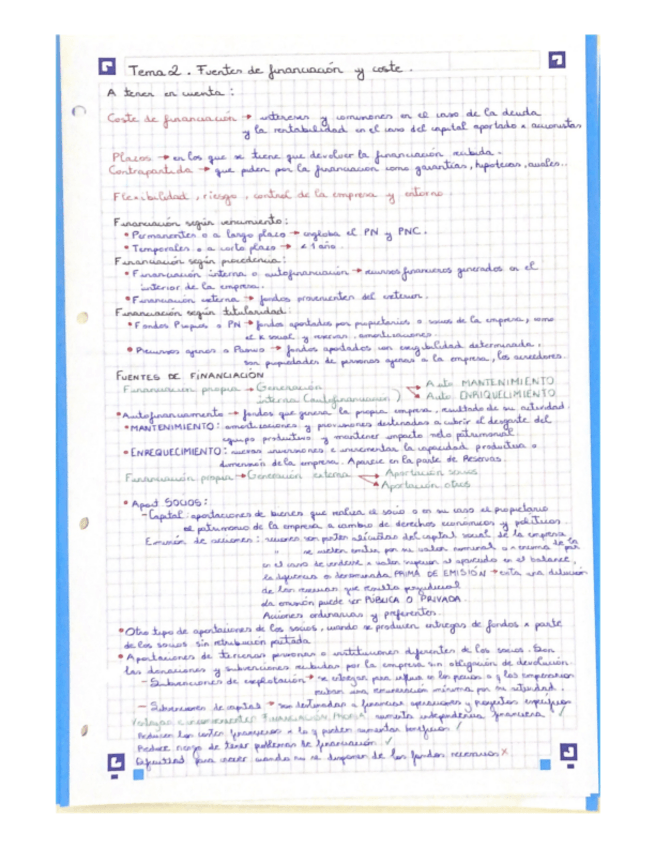 Tema 2. Fuentes de financiación y coste.
A tener en cuenta:
Coste de financiación → intereses y comisiones en el caso de la deuda
y la rentabilidad en el caso del capital aportado x accionistas
Plazos → en los que se tiene que devolver la financiación recibida.
Contrapartida → que piden por la financiación como garantías, hipotecas, avales..
Flexibilidad, riesgo, control de la empresa y entorno.
Financiación según vencimiento:
• Permanentes o a largo plazo → engloba el PN y PNC.
• Temporales o a corto plazo → < 1 año.
Financiación según procedencia:
• Financiación interna o autofinanciación → recursos financieros generados en el
interior de la empresa.
• Financiación externa → fondos provenientes del exterior.
Financiación según titularidad:
• Fondos Propios o PN → fondos aportados por propietarios o socios de la empresa, como
el K social y reservas, amortizaciones.
• Recursos ajenos o Pasivo → fondos aportados con exigibilidad determinada,
son propiedades de personas ajenas a la empresa, los acreedores.
FUENTES DE FINANCIACIÓN
Financiación propia → Generación
interna (autofinanciación)
→ Auto MANTENIMIENTO
→ Auto ENRIQUECIMIENTO
• Autofinanciamiento → fondos que genera la propia empresa, resultado de su actividad.
• MANTENIMIENTO: amortizaciones y provisiones destinadas a cubrir el desgaste del
equipo productivo y mantener impacto neto patrimonial.
• ENREQUECIMIENTO: nuevas inversiones e incrementar la capacidad productiva o
dimensión de la empresa. Aparece en la parte de Reservas.
Financiación propia → Generación externa → Aportación socios
→ Aportación otros
• Aport. SOCIOS:
- Capital: aportaciones de bienes que realiza el socio o en su caso el propietario
al patrimonio de la empresa a cambio de derechos económicos y políticos.
Emisión de acciones: acciones son partes alícuotas del capital social de la empresa
" se suelen emitir por su valor nominal o x encima de la par
en el caso de venderse x valor superior al aparecido en el balance,
la diferencia es denominada PRIMA DE EMISIÓN → evita una dilución
de las reservas que resulta perjudicial
La emisión puede ser PÚBLICA O PRIVADA.
Acciones ordinarias y preferentes.
• Otro tipo de aportaciones de los socios, cuando se producen entregas de fondos x parte
de los socios sin retribución pactada
• Aportaciones de terceras personas o instituciones diferentes de los socios. Son
las donaciones y subvenciones recibidas por la empresa sin obligación de devolución.
- Subvenciones de explotación → se otorgan para influir en los precios o q las empresas
reciban una remuneración mínima por su actividad.
- Subvenciones de capital → son destinadas a financiar operaciones y proyectos específicos
Ventajas e inconvenientes FINANCIACIÓN PROPIA: aumenta independencia financiera ✓
Reducen los costes financieros x lo q pueden aumentar beneficios ✓
Reduce riesgo de tener problemas de financiación ✓
Dificultad para crecer cuando no se disponen de los fondos necesarios X